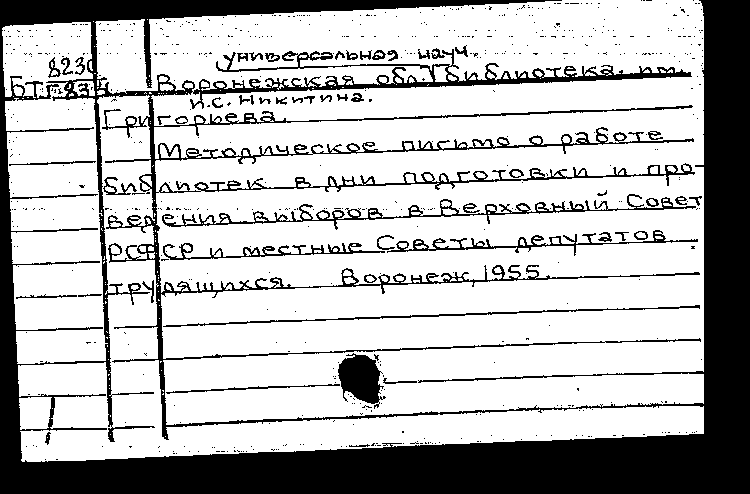 универсальная науч.
8230
БТ Воронежская обл. библиотека. им.
И.С. Никитина.
Григорьева.
Методическое письмо о работе
библиотек в дни подготовки и про-
ведения выборов в Верховный Совет
РСФСР и местные Советы депутатов
трудящихся. Воронеж, 1955.